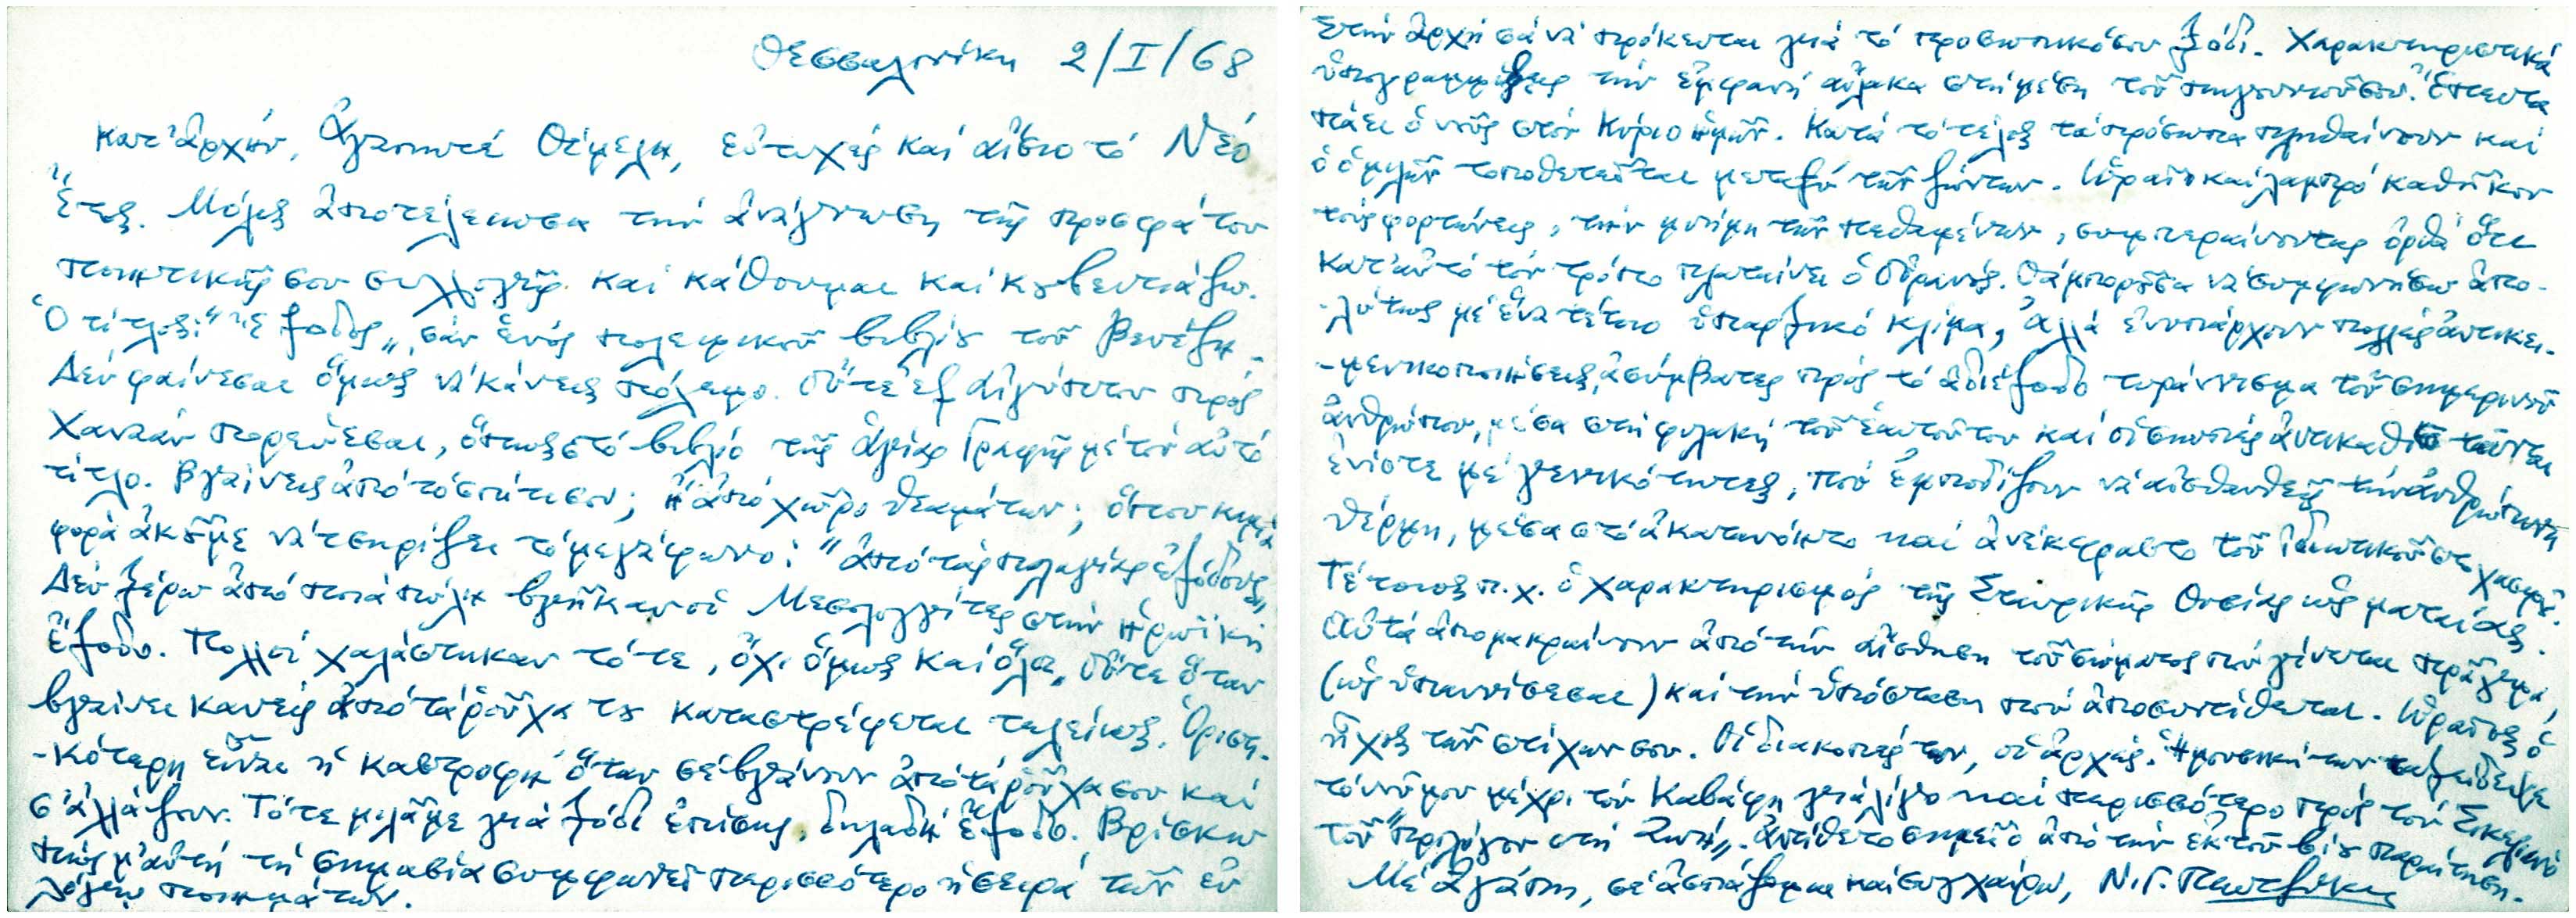 Θεσσαλονίκη 2/I/68
Κατ' ἀρχήν, Ἀγαπητέ Θέμελη, εὐτυχές καί αἴσιο τό Νέο
Ἔτος. Μόλις ἀποτελείωσα τήν ἀνάγνωση τῆς προσφάτου
ποιητικῆς σου συλλογῆς καί κάθουμαι καί κȣβεντιάζω.
Ὁ τίτλος: "Ἔξοδος", σάν ἑνός πολεμικοῦ βιβλίȣ τοῦ Βενέζη.
Δέν φαίνεσαι ὅμως νά κάνεις πόλεμο. Οὔτε ἐξ Αἰγύπτου πρός
Χαναάν πορεύεσαι, ὅπως στό βιβλίο τῆς Ἁγίας Γραφῆς μέ τόν αὐτό
τίτλο. Βγαίνεις ἀπό τό σπίτι σου; ἤ ἀπό χῶρο θεαμάτων; ὅπου καμμιά
φορά ἀκοῦμε νά τσηρίζει τό μεγάφωνο: "ἀπό τάς πλαγίας ἐξόδους".
Δέν ξέρω ἀπό ποιά πύλη βγῆκαν οἱ Μεσολογγίτες στήν ἡρωϊκή
ἔξοδο. Πολλοί χαλάστηκαν τότε, ὄχι ὅμως καί ὅλοι. Οὔτε ὅταν
βγαίνει κανείς ἀπό τά ροῦχα τȣ καταστρέφεται τελείως. Ὁριστι-
-κότερη εἶναι ἡ καταστροφή ὅταν σέ βγάνουν ἀπό τά ροῦχα σου καί
σ' ἀλλάζουν. Τότε μιλᾶμε γιά ξόδι ἐπίσης, δηλαδή ἔξοδο. Βρίσκω
πώς μ' αὐτή τή σημασία συμφωνεῖ περισσότερο ἡ σειρά τῶν ἐν
λόγῳ ποιημάτων.
Στήν ἀρχή σά νά πρόκειται γιά τό προσωπικό σου ξόδι. Χαρακτηριστικά
ὑπογραμμίζεις τήν ἐμφανή αὔλακα στή μέση τοῦ πηγουνιοῦ σου. Ἔπειτα
πάει ὁ νοῦς στόν Κύριο ἡμῶν. Κατά τό τέλος τά πρόσωπα πληθαίνουν καί
ὁ ὁμιλῶν τοποθετεῖται μεταξύ τῶν ζώντων. Ὡραῖο καί λαμπρό καθῆκον
τούς φορτώνεις, τήν μνήμη τῶν πεθαμένων, συμπεραίνοντας ὀρθά ὅτι
κατ' αὐτό τόν τρόπο πλαταίνει ὁ Οὐρανός. Θά μποροῦσα νά συμφωνήσω ἀπο-
-λύτως μέ ἕνα τέτοιο ὑπαρξικό κλίμα, ἀλλά ἐνυπάρχουν πολλές ἀντικει-
-μενικοποιήσεις, ἀσύμβατες πρός τό ἀδιέξοδο τυράννισμα τοῦ σημερινοῦ
ἀνθρώπου, μέσα στή φυλακή τοῦ ἑαυτοῦ του καί οἱ σιωπές ἀντικαθίστανται
ἐνίοτε μέ γενικότητες, πού ἐμποδίζουν νά αἰσθανθεῖς τήν ἀνθρώπινη
θέρμη, μέσα στό ἀκατανόητο καί ἀνέκφραστο τοῦ ἰδιωτικοῦ στοχασμοῦ.
Τέτοιος π.χ. ὁ χαρακτηρισμός τῆς Σταυρικῆς Θυσίας ὡς ματαίας.
Αὐτά ἀπομακραίνουν ἀπό τήν αἴσθηση τοῦ σώματος πού γίνεται πρᾶγμα,
(ὡς ὑπαινίσσεσαι) καί τήν ὑπόσταση πού ἀποσυντίθεται. Ὡραῖος ὁ
ἦχος τῶν στίχων σου. Οἱ διακοπές των, οἱ ἀρχές. Ἡ μουσική των ταξείδεψε
τό νοῦ μου μέχρι τόν Καβάφη γιά λίγο καί περισσότερο πρός τόν Σικελιανό
τοῦ "Προλόγου στή Ζωή". Ἀντίθετο σημεῖο ἀπό τήν ἐκ τοῦ βίȣ παραίτηση.
Μέ ἀγάπη, σέ ἀσπάζομαι καί συγχαίρω, Ν.Γ. Πεντζίκης